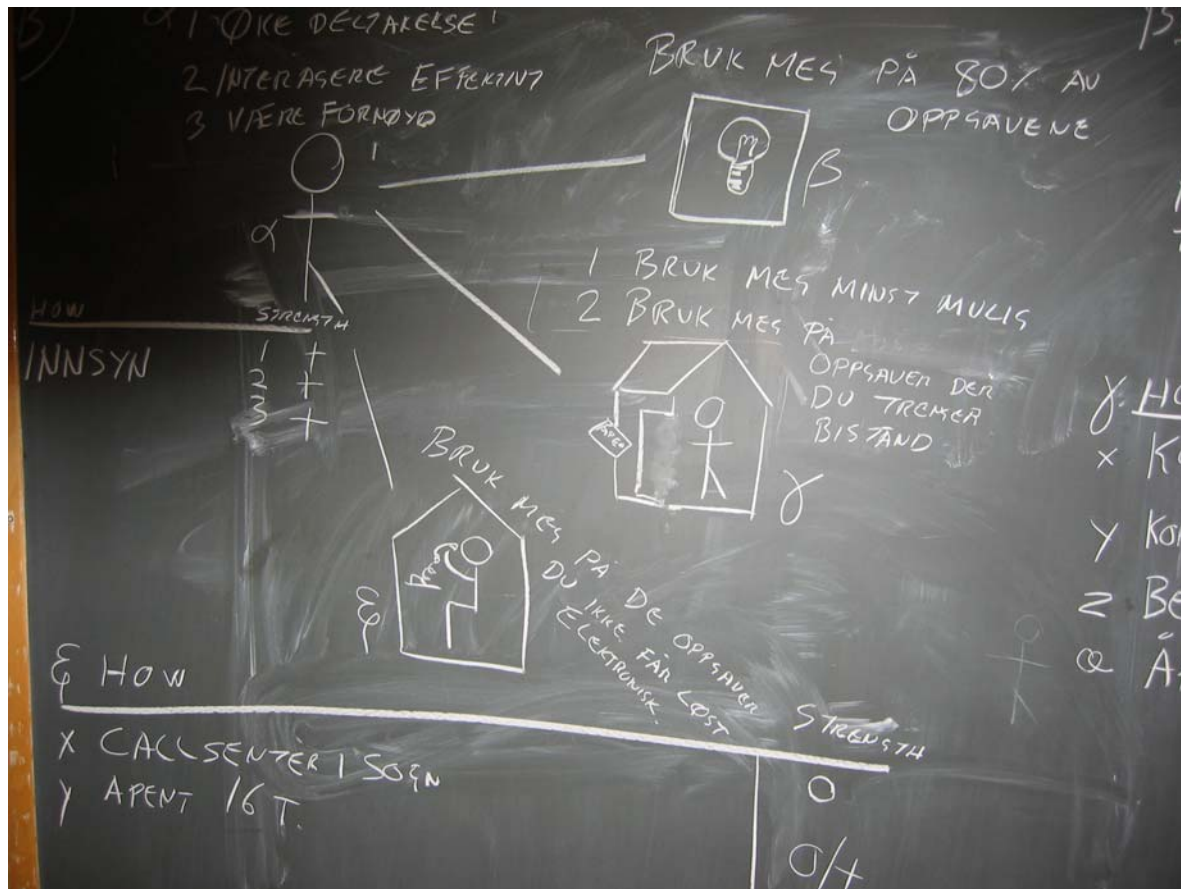 B)
α 1 ØKE DELTAKELSE!
2 INTERAGERE EFFEKTIVT
3 VÆRE FORNØYD
BRUK MEG PÅ 80% AV
OPPGAVENE
β
α
1 BRUK MEG MINST MULIG
2 BRUK MEG PÅ
OPPGAVER DER
DU TRENGER
BISTAND
ÅPENT
γ
HOW STRENGTH
INNSYN 1 +
2 +
3 +
BRUK MEG PÅ DE OPPGAVER
DU IKKE FÅR LØST
ELEKTRONISK.
ξ
ξ HOW STRENGTH
X CALLSENTER I SOGN O
Y APENT 16 T. O/+
γ: HO
x K
y KO
z BE
Å